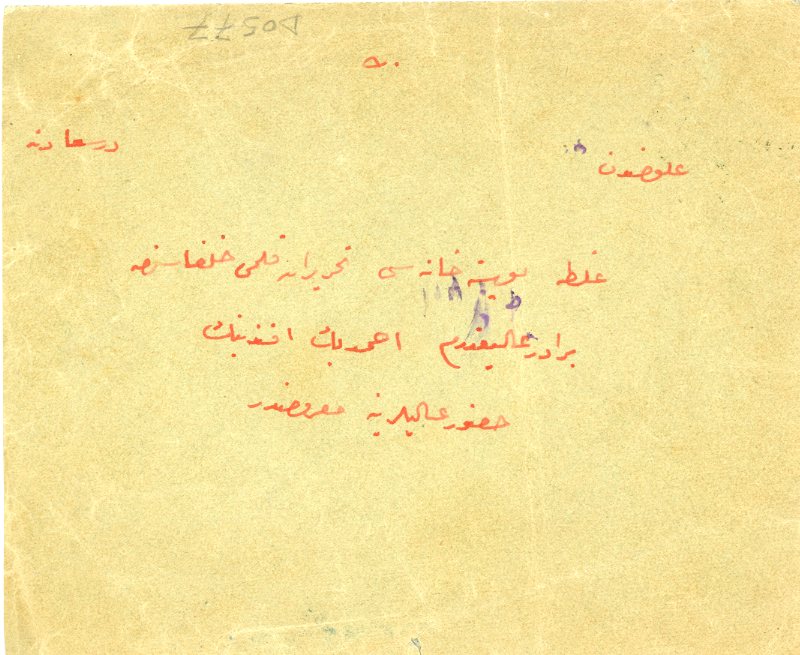 D0577
درسعادته
غلطه پوسته خانه سی تحریرات قلمی خلفاسندن
برادر عالیقدرم احمد بك افندینك
حضور عالیلرینه معروضدر